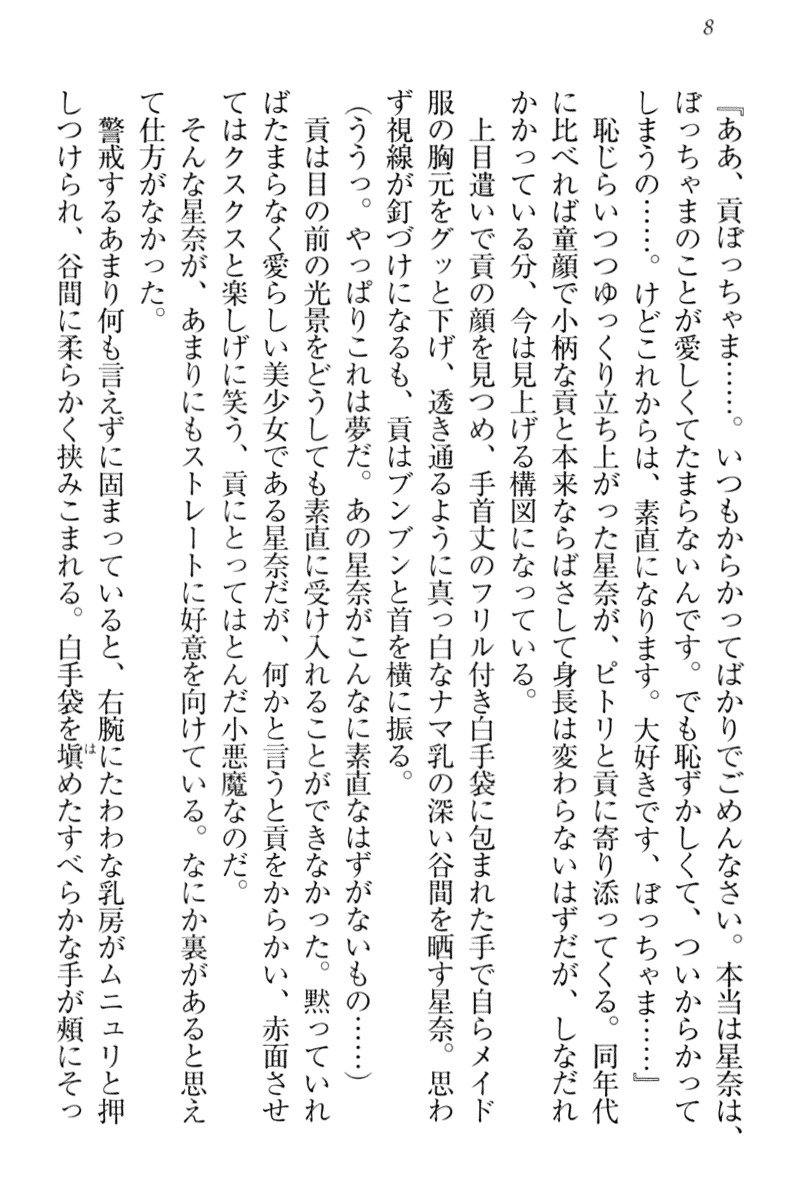 8
『ああ、貢ぼっちゃま……。いつもからかってばかりでごめんなさい。本当は星奈は、
ぼっちゃまのことが愛しくてたまらないんです。でも恥ずかしくて、ついからかって
しまうの……。けどこれからは、素直になります。大好きです、ぼっちゃま……』
恥じらいつつゆっくり立ち上がった星奈が、ピトリと貢に寄り添ってくる。同年代
に比べれば童顔で小柄な貢と本来ならばさして身長は変わらないはずだが、しなだれ
かかっている分、今は見上げる構図になっている。
上目遣いで貢の顔を見つめ、手首丈のフリル付き白手袋に包まれた手で自らメイド
服の胸元をグッと下げ、透き通るように真っ白なナマ乳の深い谷間を晒す星奈。思わ
ず視線が釘づけになるも、貢はブンブンと首を横に振る。
(ううっ。やっぱりこれは夢だ。あの星奈がこんなに素直なはずがないもの……)
貢は目の前の光景をどうしても素直に受け入れることができなかった。黙っていれ
ばたまらなく愛らしい美少女である星奈だが、何かと言うと貢をからかい、赤面させ
てはクスクスと楽しげに笑う、貢にとってはとんだ小悪魔なのだ。
そんな星奈が、あまりにもストレートに好意を向けている。なにか裏があると思え
て仕方がなかった。
警戒するあまり何も言えずに固まっていると、右腕にたわわな乳房がムニュリと押
しつけられ、谷間に柔らかく挟みこまれる。白手袋を塡めたすべらかな手が頰にそっ
は